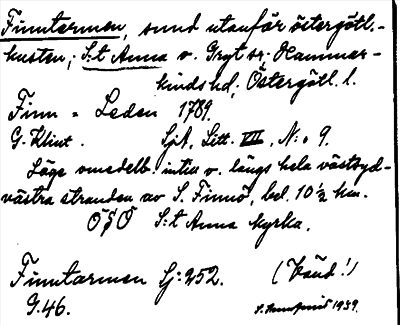 Finntarmen, sund utanför östergötl.-
kusten; S:t Anna o. Gryt sr; Hammar-
kinds hd; Östergötl. l.
Finn = Leden 1789.
G. Klint. SjA, Litt. VII, N:o 9.
Läge omedelb. intill o. längs hela västsyd-
västra stranden av S. Finnö, bel. 10½ km.
ÖSÖ S:t Anna kyrka.
Finntarmen Gj: 252. (Vänd!)
G. 46. 1939.